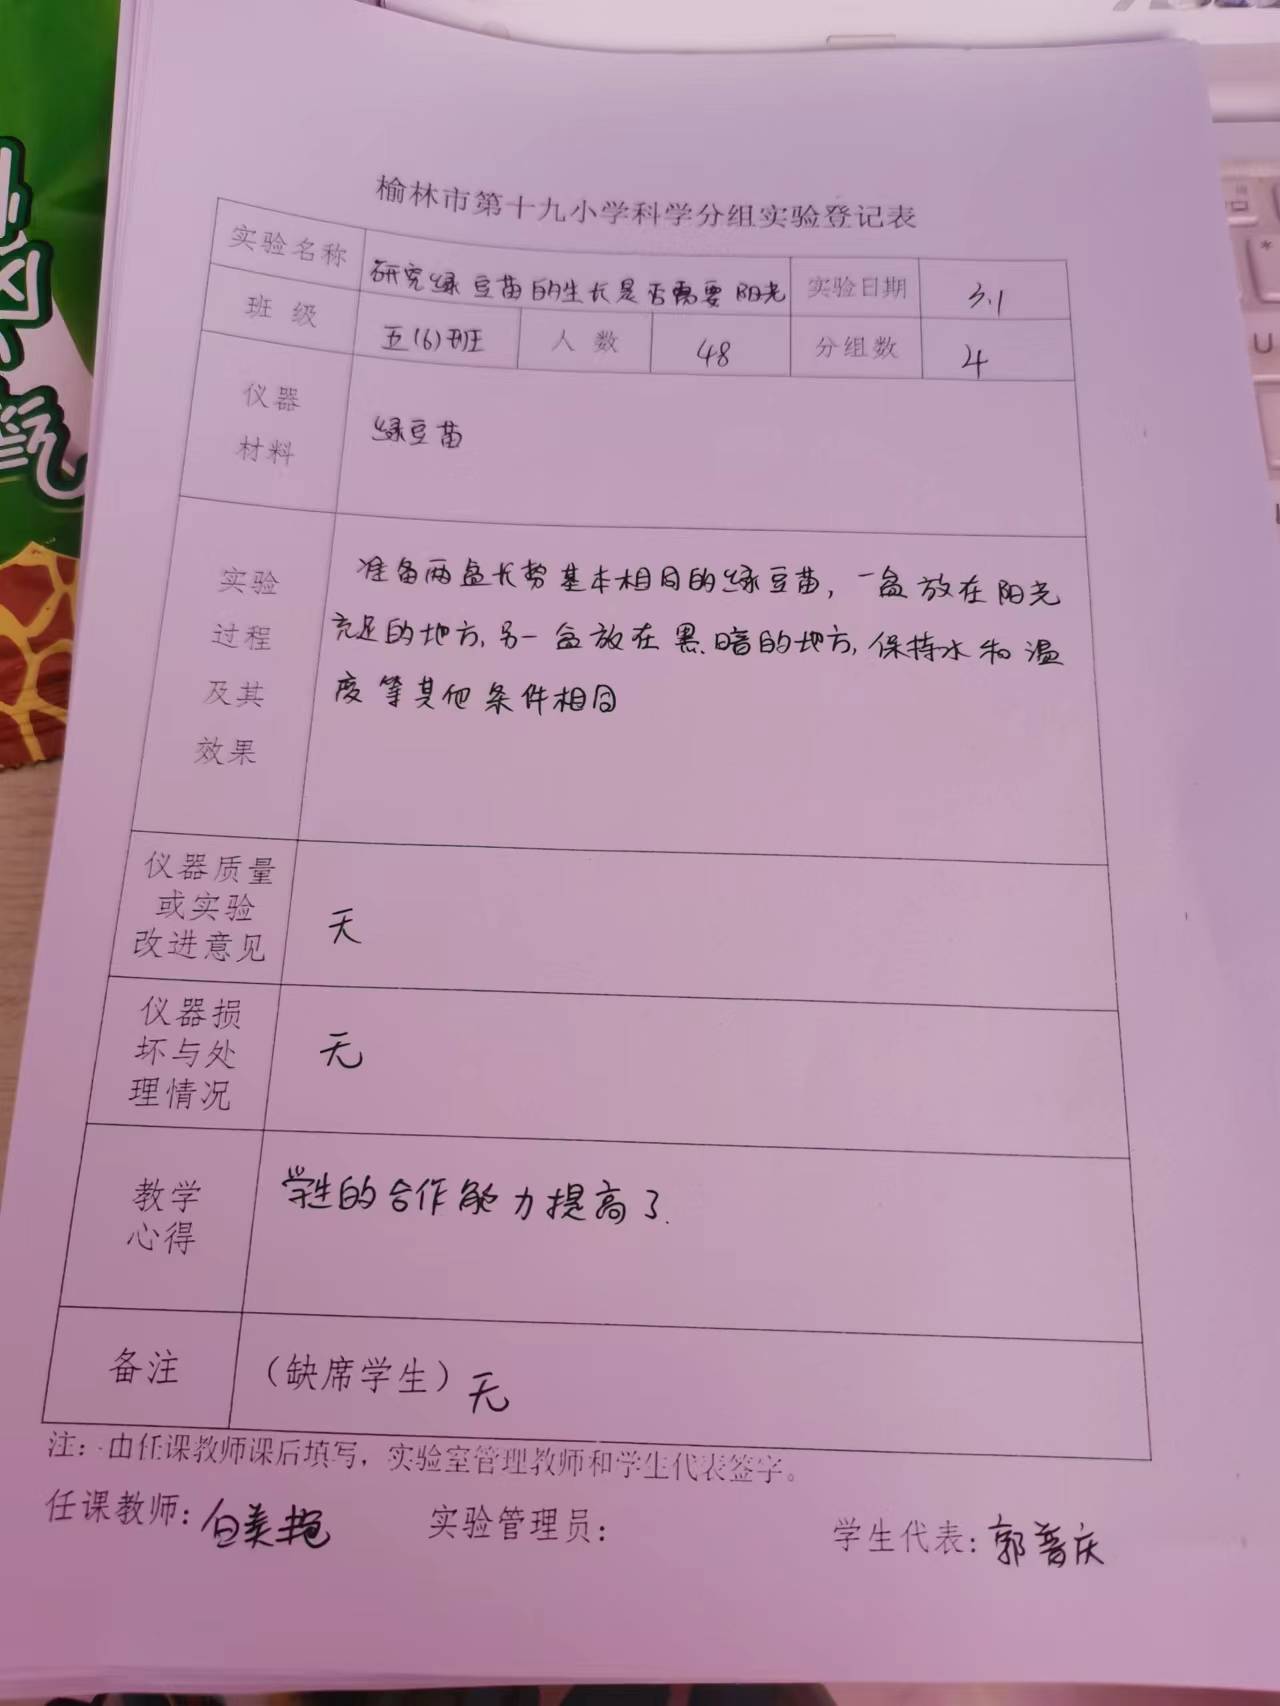 榆林市第十九小学科学分组实验登记表
实验名称 研究绿豆苗的生长是否需要阳光 实验日期 3.1
班 级 五(6)班 人 数 48 分组数 4
仪器
材料
绿豆苗
实验
过程
及其
效果
准备两盆长势基本相同的绿豆苗,一盆放在阳光
充足的地方,另一盆放在黑暗的地方,保持水和温
度等其他条件相同
仪器质量
或实验
改进意见
无
仪器损
坏与处
理情况
无
教学
心得
学生的合作能力提高了.
备注 (缺席学生) 无
注:由任课教师课后填写,实验室管理教师和学生代表签字。
任课教师: 实验管理员: 学生代表:郭普庆